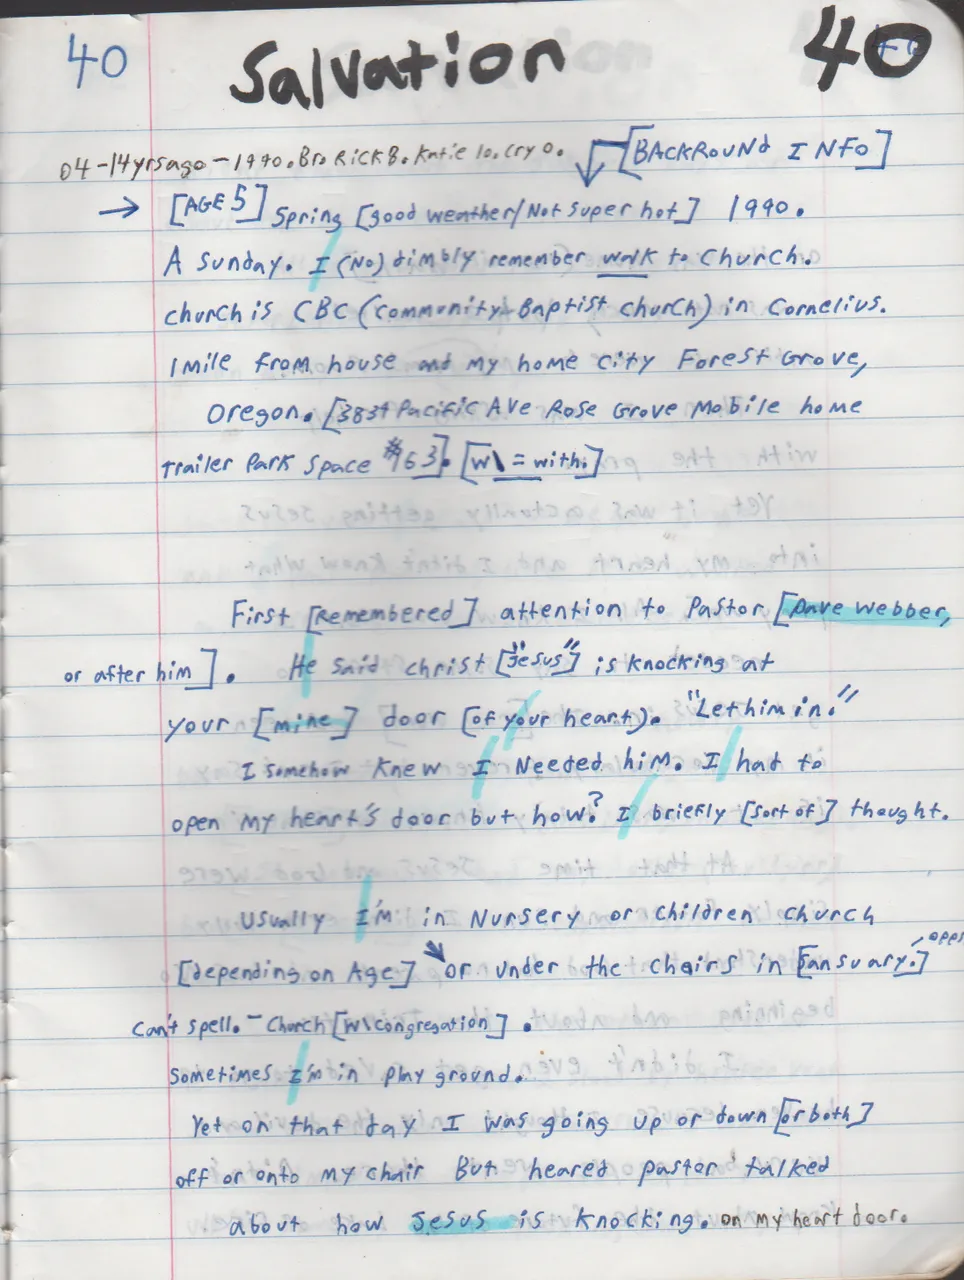 40 Salvation 40
04-14yrsago-1990. Bro Rick 8. Katie 10. Cry 0. [BACKROUNd INFO]
→ [AGE 5] Spring [good weather/Not super hot] 1990.
A Sunday. I (No) dimbly remember walk to Church.
church is CBC (Community Baptist church) in Cornelius.
1 mile from house and my home city Forest Grove,
Oregon. [3834 Pacific Ave Rose Grove Mobile home
trailer Park Space #63]. [w\ = with.]
First [Remembered] attention to Pastor [Dave Webber,
or after him]. He said christ ["Jesus"] is knocking at
your [mine] door [of your heart). "Let him in."
I somehow knew I Needed him. I had to
open my heart's door but how? I briefly [sort of] thought.
Usually I'm in Nursery or children church
[depending on Age] or under the chairs in [sansuary.] opps
can't spell. - Church [w\congregation].
Sometimes I'm in play ground.
Yet on that day I was going up or down [or both]
off or onto my chair But heared pastor talked
about how Jesus is knocking. on my heart door.